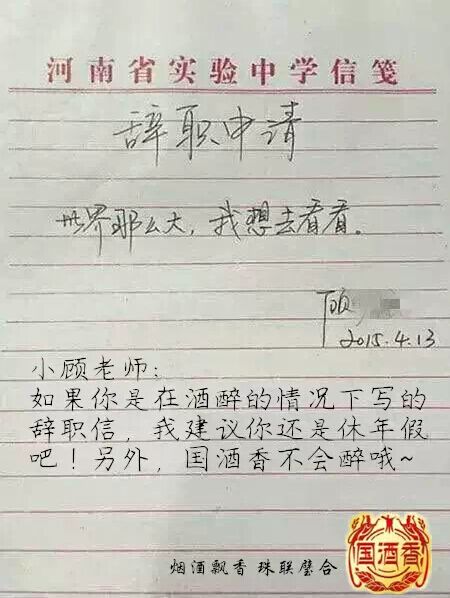 河南省实验中学信笺
辞职申请
世界那么大，我想去看看。
顾
2015.4.13
小顾老师：
如果你是在酒醉的情况下写的
辞职信，我建议你还是休年假
吧！另外，国酒香不会醉哦~
国酒香
烟酒飘香 珠联璧合